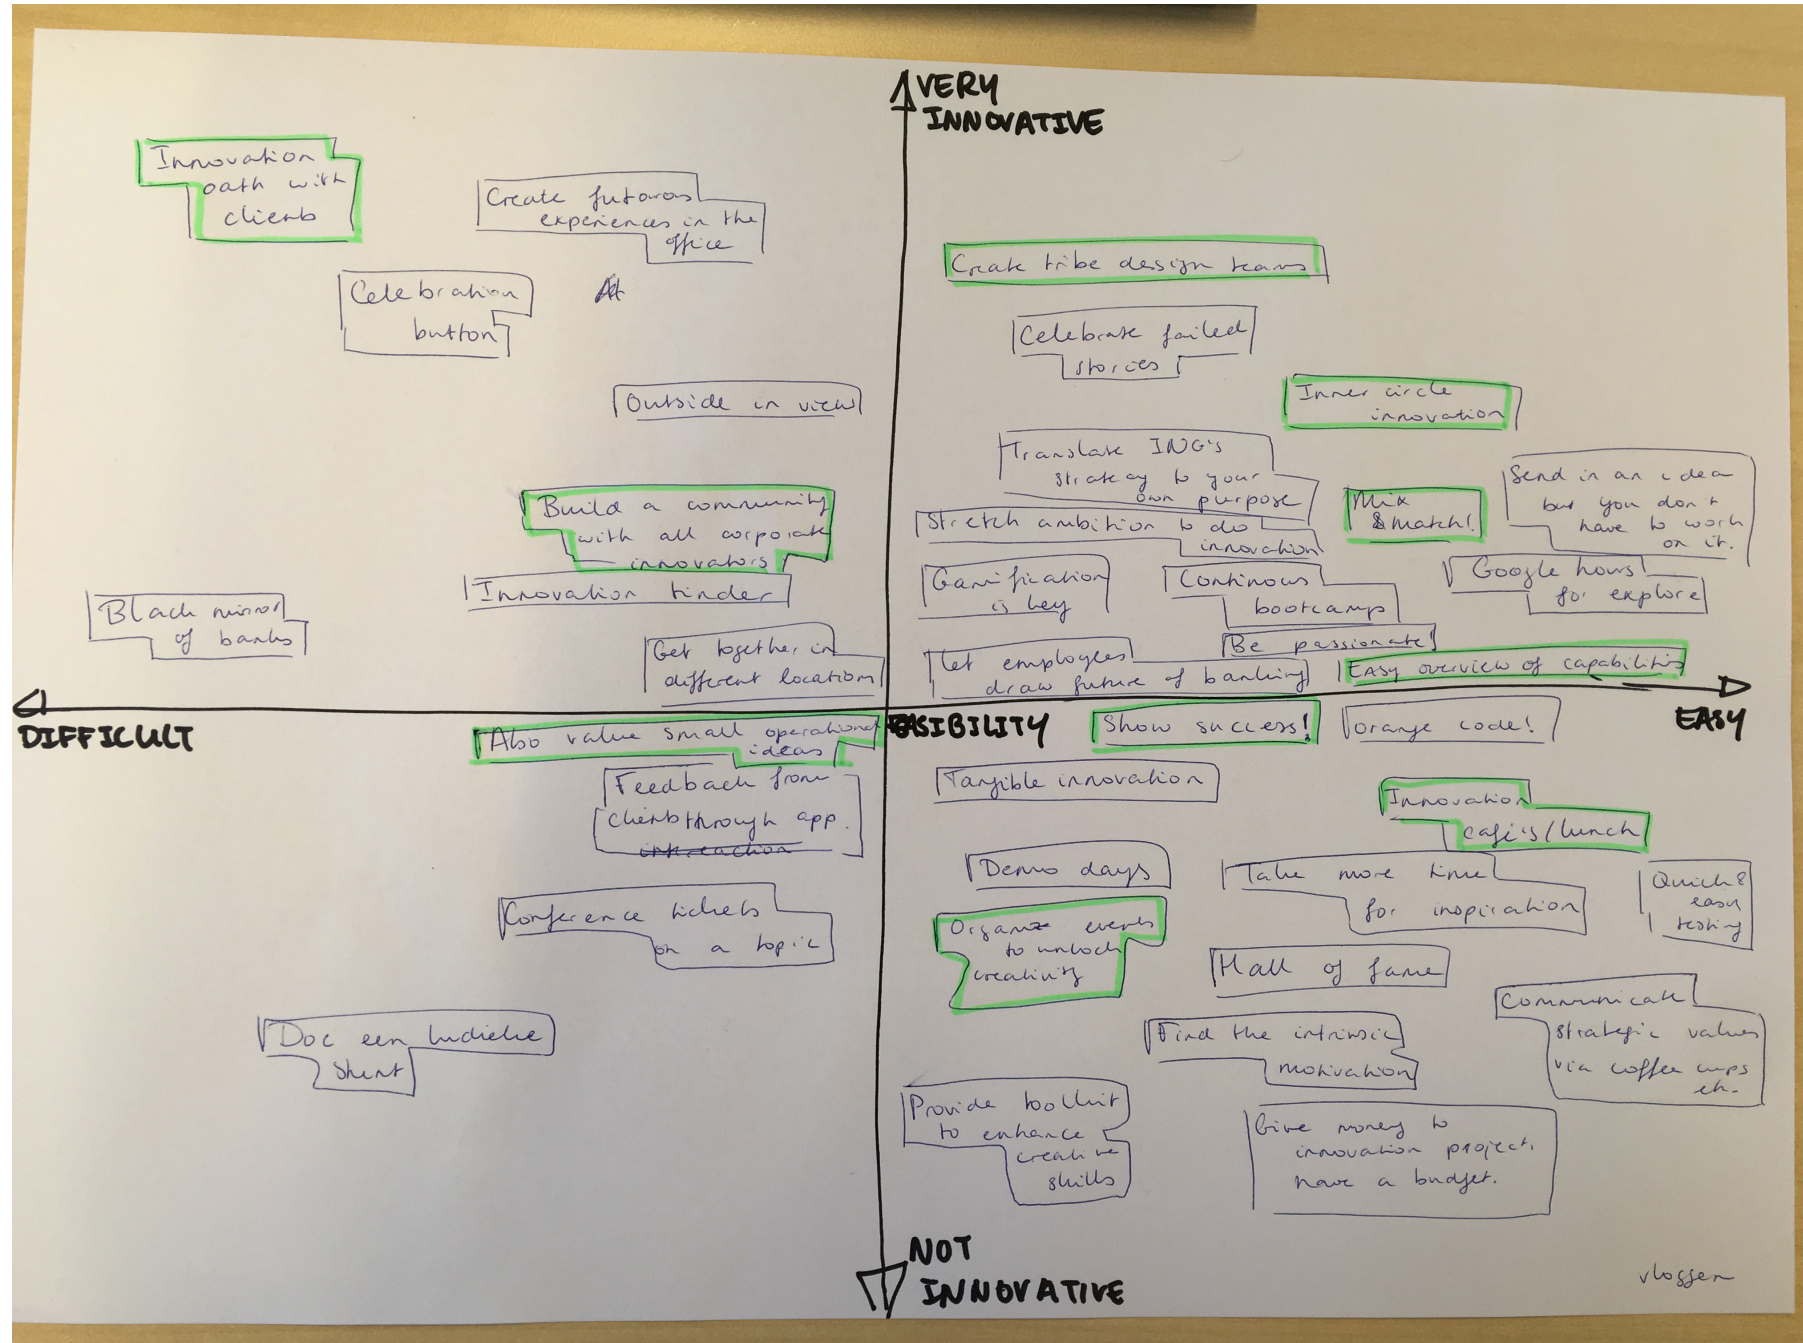 VERY
INNOVATIVE
Innovation
path with
clients
Create futuros
experiences in the
office
Celebration
button
Outside in view
Build a community
with all corporate
innovators
Innovation tinder
Black mirror
of banks
Get together in
different locations
Create tribe design teams
Celebrate failed
stories
Inner circle
innovation
Translate ING's
strategy to your
own purpose
Mix
& Match!
Send in an idea
but you don't
have to work
on it.
Stretch ambition to do
innovation
Gamification
is key
Continous
bootcamps
Google hours
for explore
Be passionate!
Let employees
draw future of banking
Easy overview of capabilities
DIFFICULT
EASIBILITY
EASY
Also value small operational
ideas
Feedback from
clients through app.
interaction
Conference tickets
on a topic
Doe een ludieke
stunt
Show success!
Orange code!
Tangible innovation
Innovation
café's/lunch
Demo days
Take more time
for inspiration
Quick &
easy
testing
Organize events
to unlock
creativity
Hall of fame
Communicate
strategic values
via coffee cups
etc.
Find the intrinsic
motivation
Provide toolkit
to enhance
creative
skills
Give money to
innovation project.
have a budget.
NOT
INNOVATIVE
vloggen